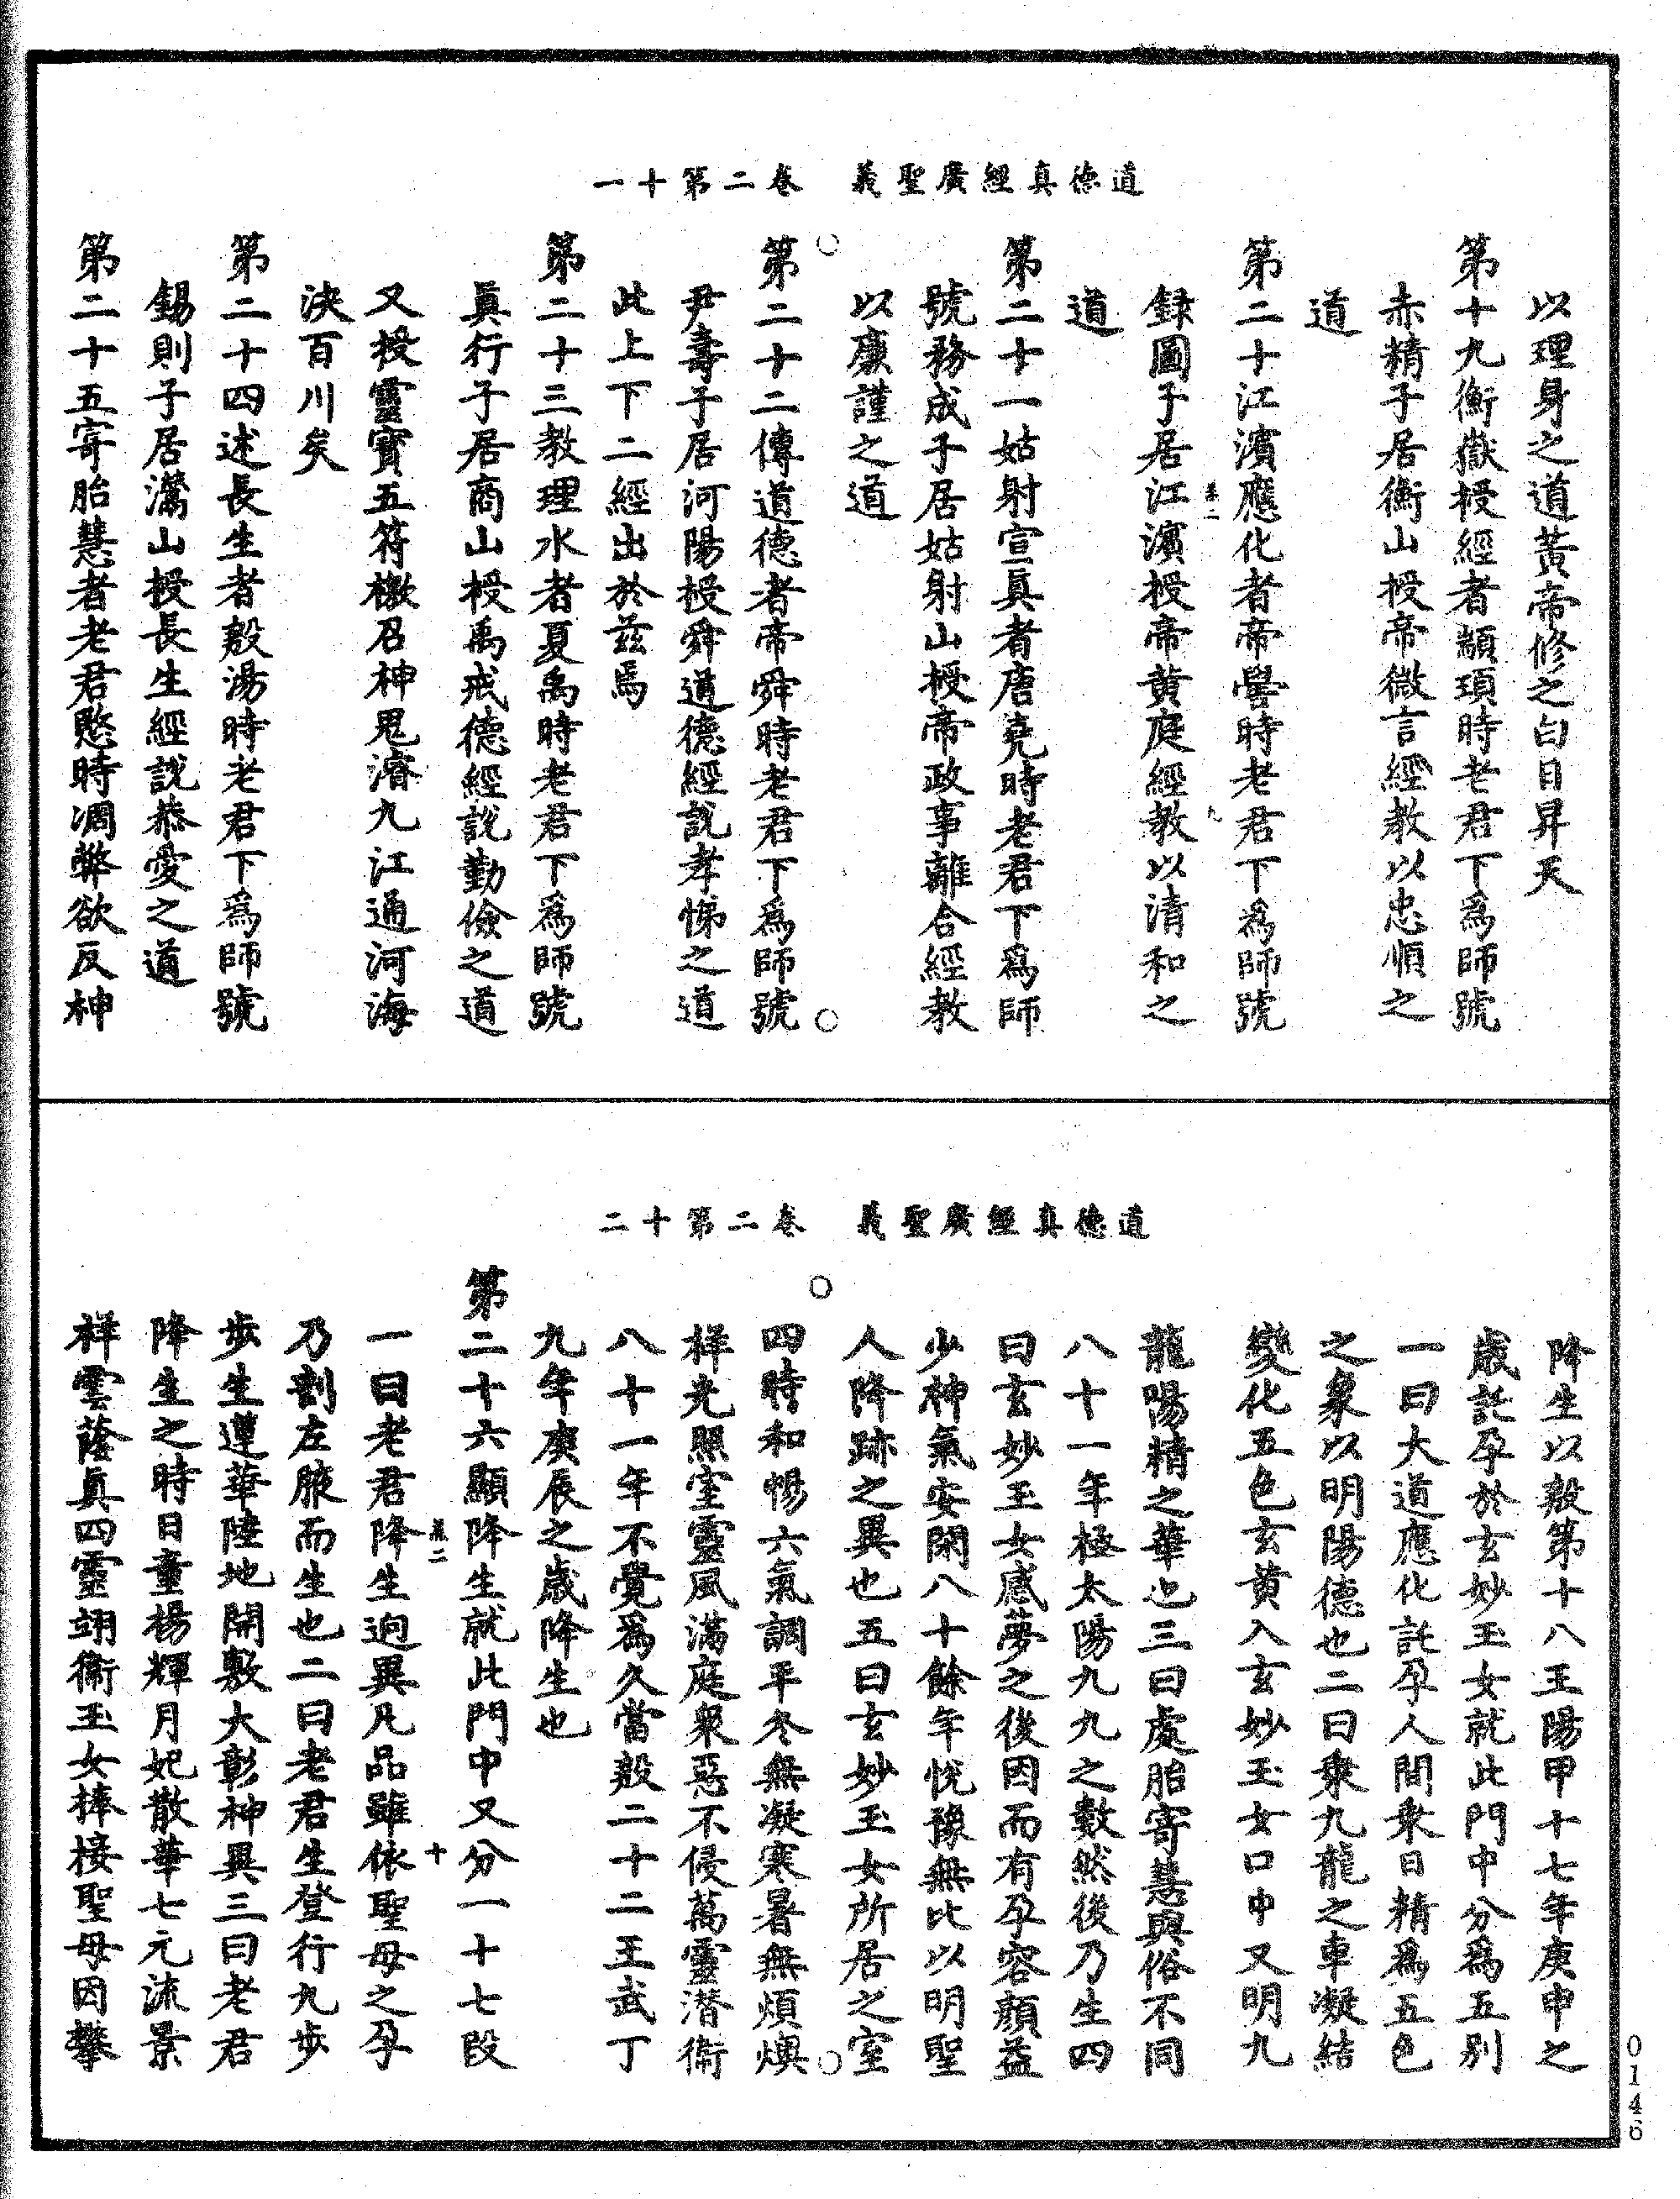 道德真經廣聖義　卷二第十一
以理身之道黃帝修之白日昇天
第十九衡嶽授經者顓頊時老君下為師號
赤精子居衡山授帝微言經教以忠順之
道
第二十江濱應化者帝嚳時老君下為師號
義二　九
録圖子居江濱授帝黃庭經教以清和之
道
第二十一姑射宣眞者唐堯時老君下爲師
號務成子居姑射山授帝政事離合經教
以廉謹之道
第二十二傳道德者帝舜時老君下爲師號
尹壽子居河陽授舜道德經說孝悌之道
此上下二經出於茲焉
第二十三教理水者夏禹時老君下爲師號
眞行子居商山授禹戒德經說勤儉之道
又授靈寶五符檄召神鬼濬九江通河海
決百川矣
第二十四述長生者殷湯時老君下爲師號
錫則子居潛山授長生經說恭愛之道
第二十五寄胎慧者老君愍時凋弊欲反神
道德真經廣聖義　卷二第十二
降生以殷第十八王陽甲十七年庚申之
歲託孕於玄妙玉女就此門中分爲五別
一曰大道應化託孕人間乘日精爲五色
之象以明陽德也二曰乘九龍之車凝結
變化五色玄黃入玄妙玉女口中又明九
龍陽精之華也三曰處胎寄慧與俗不同
八十一年極太陽九九之數然後乃生四
曰玄妙玉女感夢之後因而有孕容顏益
少神氣安閑八十餘年悅豫無比以明聖
人降跡之異也五曰玄妙玉女所居之室
四時和暢六氣調平冬無凝寒暑無煩燠
祥光照室靈風滿庭衆惡不侵萬靈潛衛
八十一年不覺爲久當殷二十二王武丁
九年庚辰之歲降生也
第二十六顯降生就此門中又分一十七段
義二　十
一曰老君降生迥異凡品雖依聖母之孕
乃割左腋而生也二曰老君生登行九步
步生蓮華陸地開敷大彰神異三曰老君
降生之時日童楊輝月妃散華七元流景
祥雲蔭眞四靈翊衛玉女捧接聖母因攀
0146